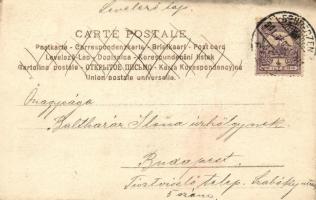 Levelező lap.
CARTE POSTALE
Postkarte - Correspondenzkarte - Briefkaart - Post card
Levelező-Lap - Dopisnica - Korespondenční lístek
Cartolina postale - ОТКРЫТОЕ ПИСЬМО - Karta Korespondencyjna
Union postale universelle.
Őnagysága
Balthazár Ilona úrhölgynek
Budapest.
Tisztviselő telep.